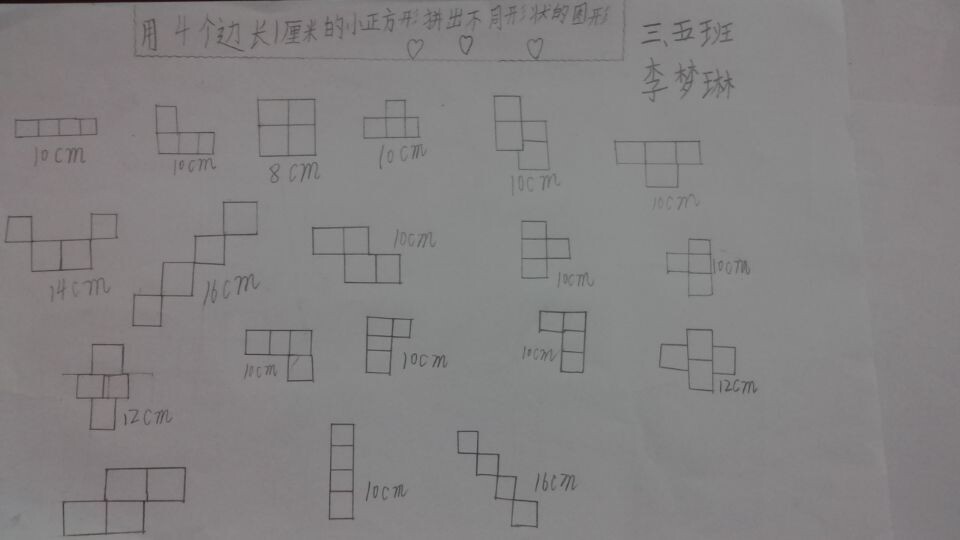 用4个边长1厘米的小正方形拼出不同形状的图形
三、五班
李梦琳
10cm
10cm
8cm
10cm
10cm
10cm
14cm
16cm
10cm
10cm
10cm
12cm
10cm
10cm
10cm
12cm
10cm
16cm